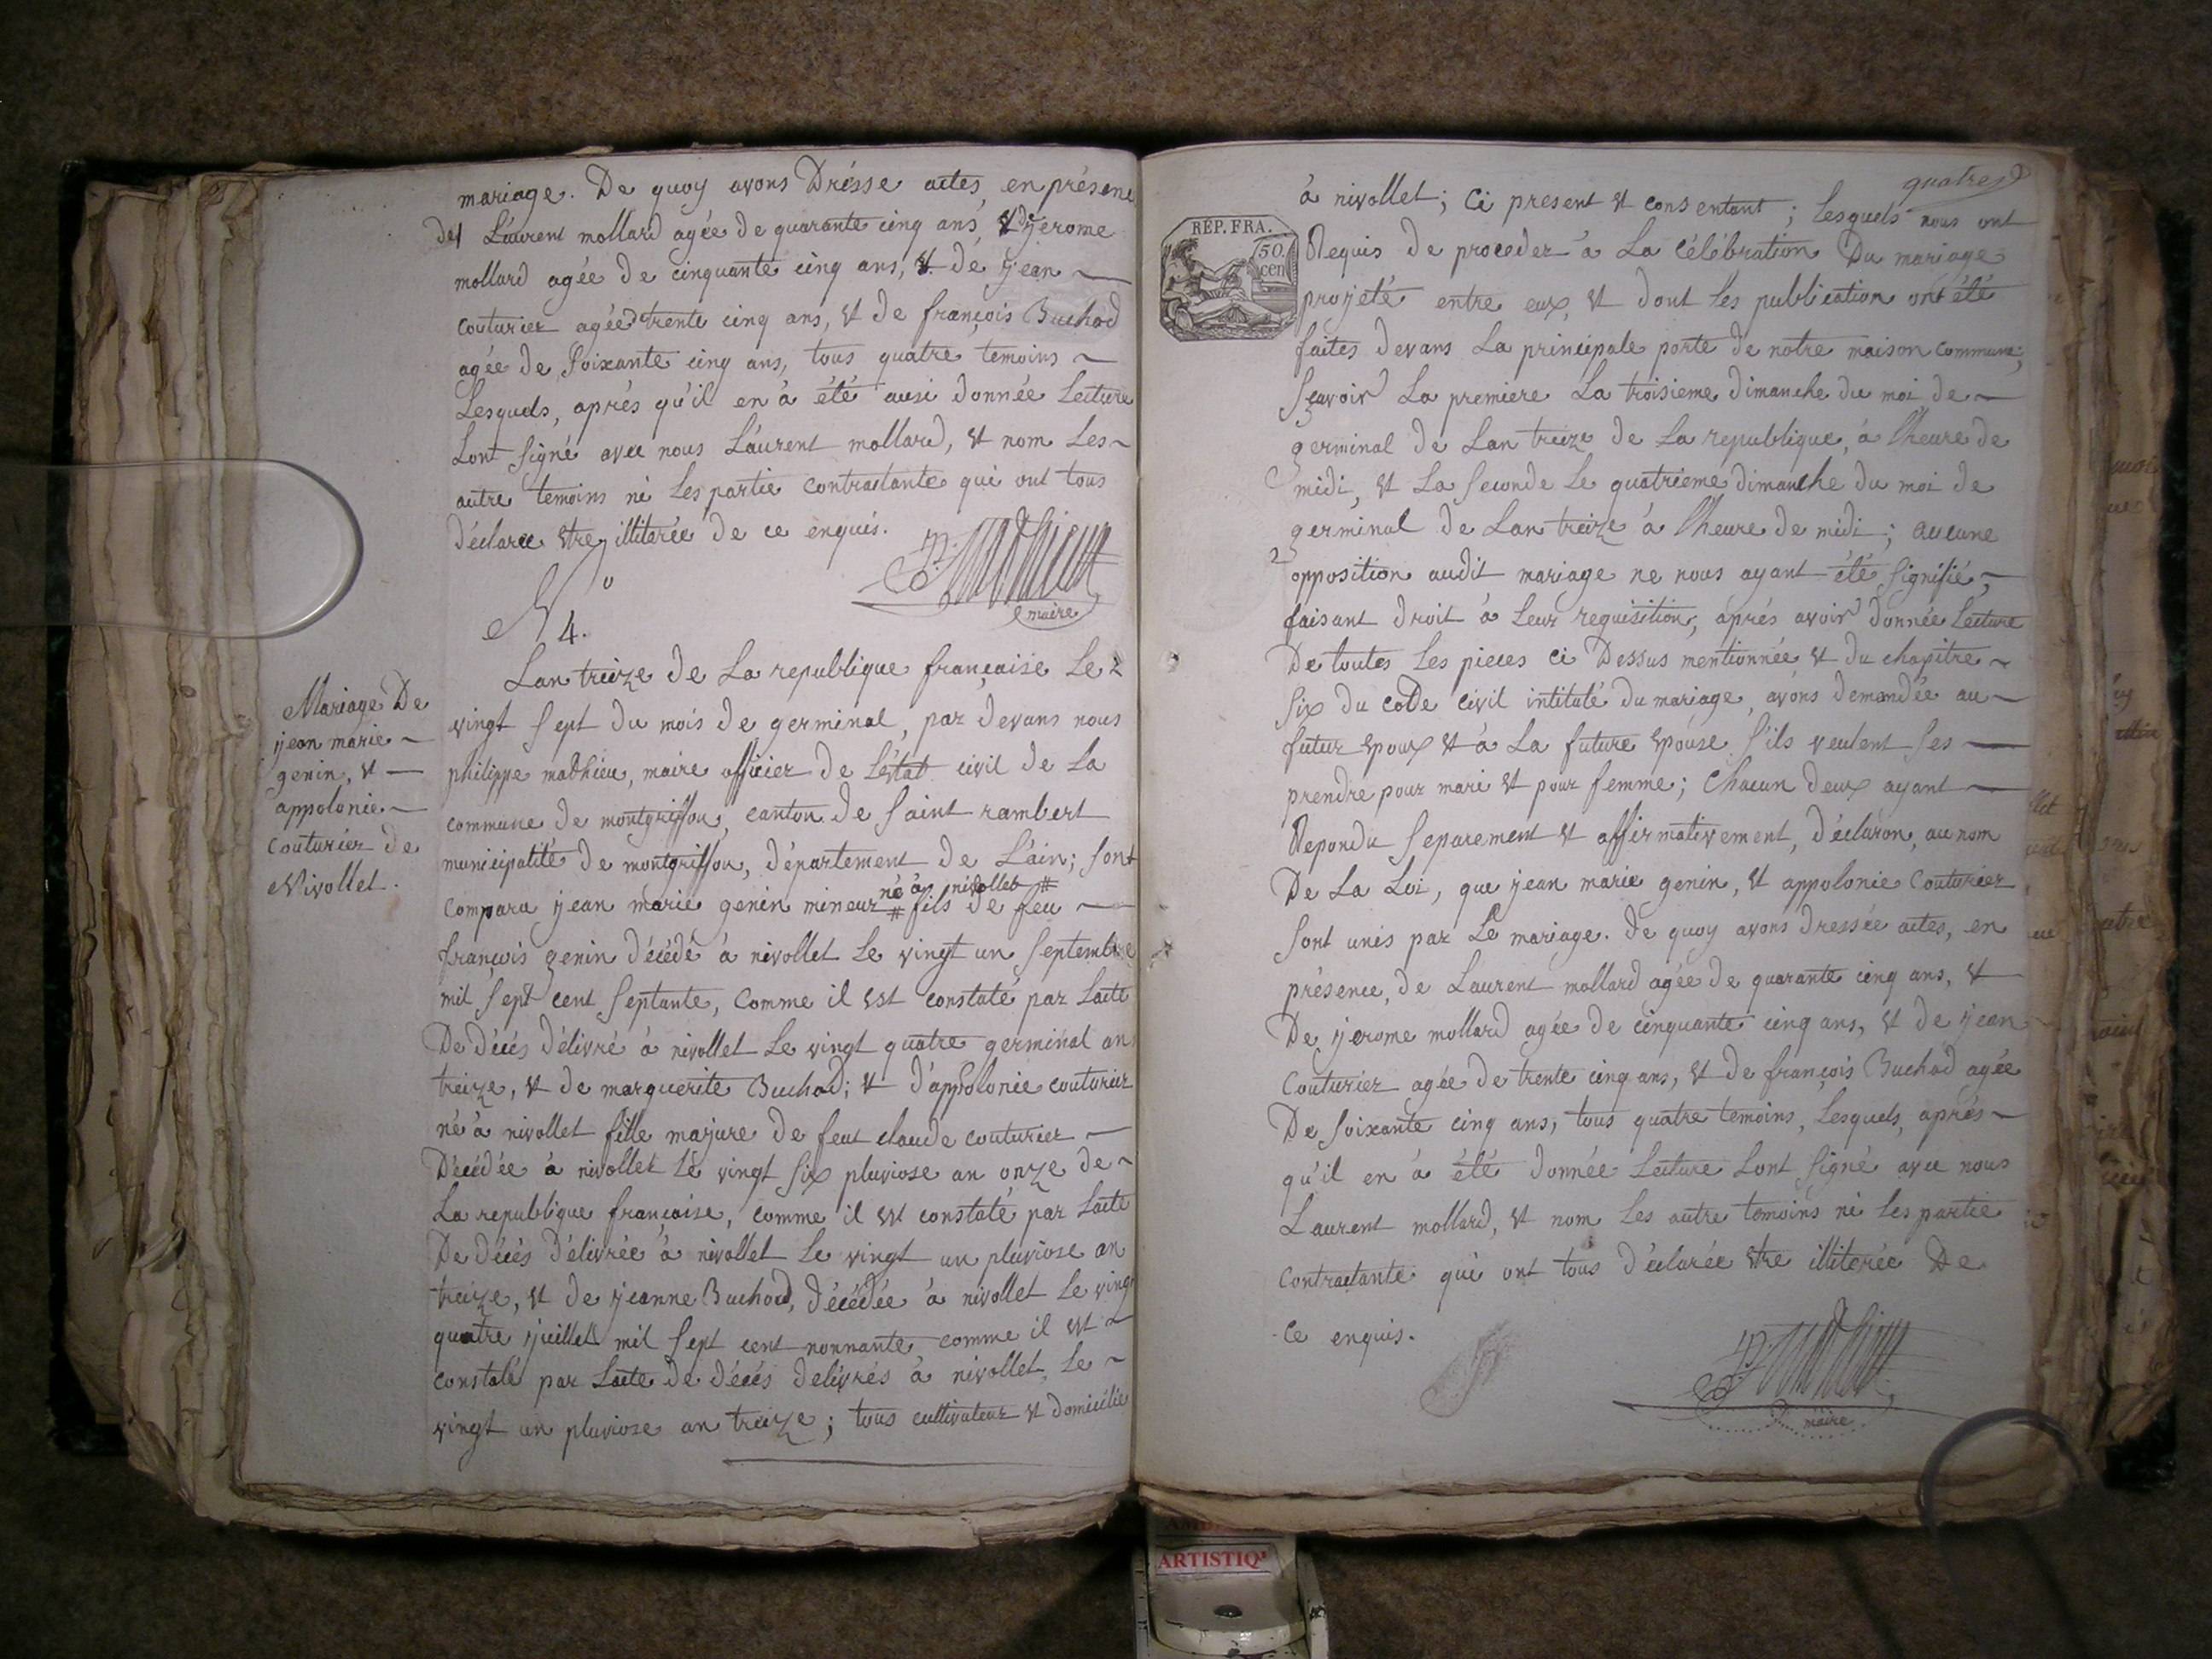 mariage. De quoy avons Drésse actes, en présenc
de Laurent mollard agée de quarante cinq ans, & de jerome
mollard agée de cinquante cinq ans, & de jean
couturier agée de trente cinq ans, & de françois Buchod
agée de Soixante cinq ans, tous quatre temoins
Lesquels, aprés qu'il en à été ausi donnée Lecture
Lont Signé avec nous Laurent mollard, & nom Les
autre temoins ni Les partie contractante qui ont tous
déclaree être illiterée de ce enquis.
P. Mathieu
maire
N° 4.
Mariage De
jean marie
genin, &
appolonie
couturier de
Nivollet.
Lan treize de La republique française Le
vingt Sept du mois de germinal, par devans nous
philippe mathieu, maire officier de Léstat civil de La
commune de montgriffon, canton de Saint rambert
municipalité de montgriffon, département de L'ain; sont
né à nivollet #
comparu jean marie genin mineur # fils de feu
françois genin décédé à nivollet Le vingt un Septembre
mil Sept cent Septante, Comme il est constaté par Lacte
De décés délivré à nivollet Le vingt quatre germinal an
treize, & de marguerite Buchod; & d'appolonie couturier
né à nivollet fille majure de feut claude couturier
Décédée à nivollet Le vingt Six pluviose an onze de
La republique française, comme il est constaté par Lacte
De décés délivrée à nivollet Le vingt un pluviose an
treize, & de jeanne Buchod, décédée à nivollet Le vingt
quatre juillet mil Sept cent nonnante, comme il est
constaté par Lacte de décés delivrés à nivollet, Le
vingt un pluviose an treize; tous cultivateur & domicilié
quatre
à nivollet; Ci present & consentant; Lesquels nous ont
REP. FRA.
50
cen
Requis de proceder à La Célébration Du mariage
projeté entre eux, & dont Les publication ont été
faites devans La principale porte de notre maison commune;
Sçavoir La premiere La troisieme dimanche du moi de
germinal de Lan treize de La republique, à l'heure de
midi, & La Seconde Le quatrieme dimanche du moi de
germinal de Lan treize à l'heure de midi; aucune
opposition audit mariage ne nous ayant été Signifié,
faisant droit à Leur requisition, aprés avoir donnée Lecture
De toutes Les pieces ci Dessus mentionnée & du chapitre
Six du coDe civil intitulé du mariage, avons demandée au
futur epoux & à La future epouse S'ils veulent Ses
prendre pour mari & pour femme; Chacun deux ayant
Repondu Separement & affirmativement, déclaron, au nom
De La Loi, que jean marie genin, & appolonie Couturier
Sont unis par Le mariage. De quoy avons dressée actes, en
présence, de Laurent mollard agée de quarante cinq ans, &
De jerome mollard agée de cinquante cinq ans, & de jean
Couturier agée de trente cinq ans, & de françois Buchod agée
De Soixante cinq ans, tous quatre temoins, Lesquels, aprés
qu'il en à été donnée Lecture Lont Signé avec nous
Laurent mollard, & nom Les autre temoins ni Les partie
Contractante qui ont tous déclarée être illiterée De
Ce enquis.
P. Mathieu
maire
ARTISTIQ